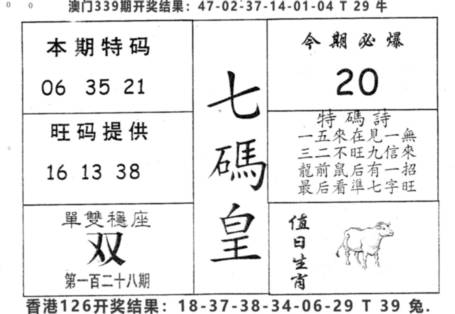 澳门339期开奖结果：47-02-37-14-01-04 T 29 牛
本期特码
06 35 21
旺码提供
16 13 38
單雙穩座
双
第一百二十八期
七碼皇
今期必爆
20
特碼詩
一五來在見一無
三二不旺九信來
龍前鼠后有一招
最后看準七字旺
值日生肖
香港126开奖结果：18-37-38-34-06-29 T 39 兔.